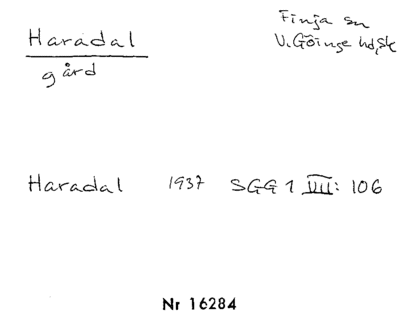 Haradal
gård
Finja sn
V. Göinge hd, Sk
Haradal 1937 SGG 1 IIII: 106
Nr 16284